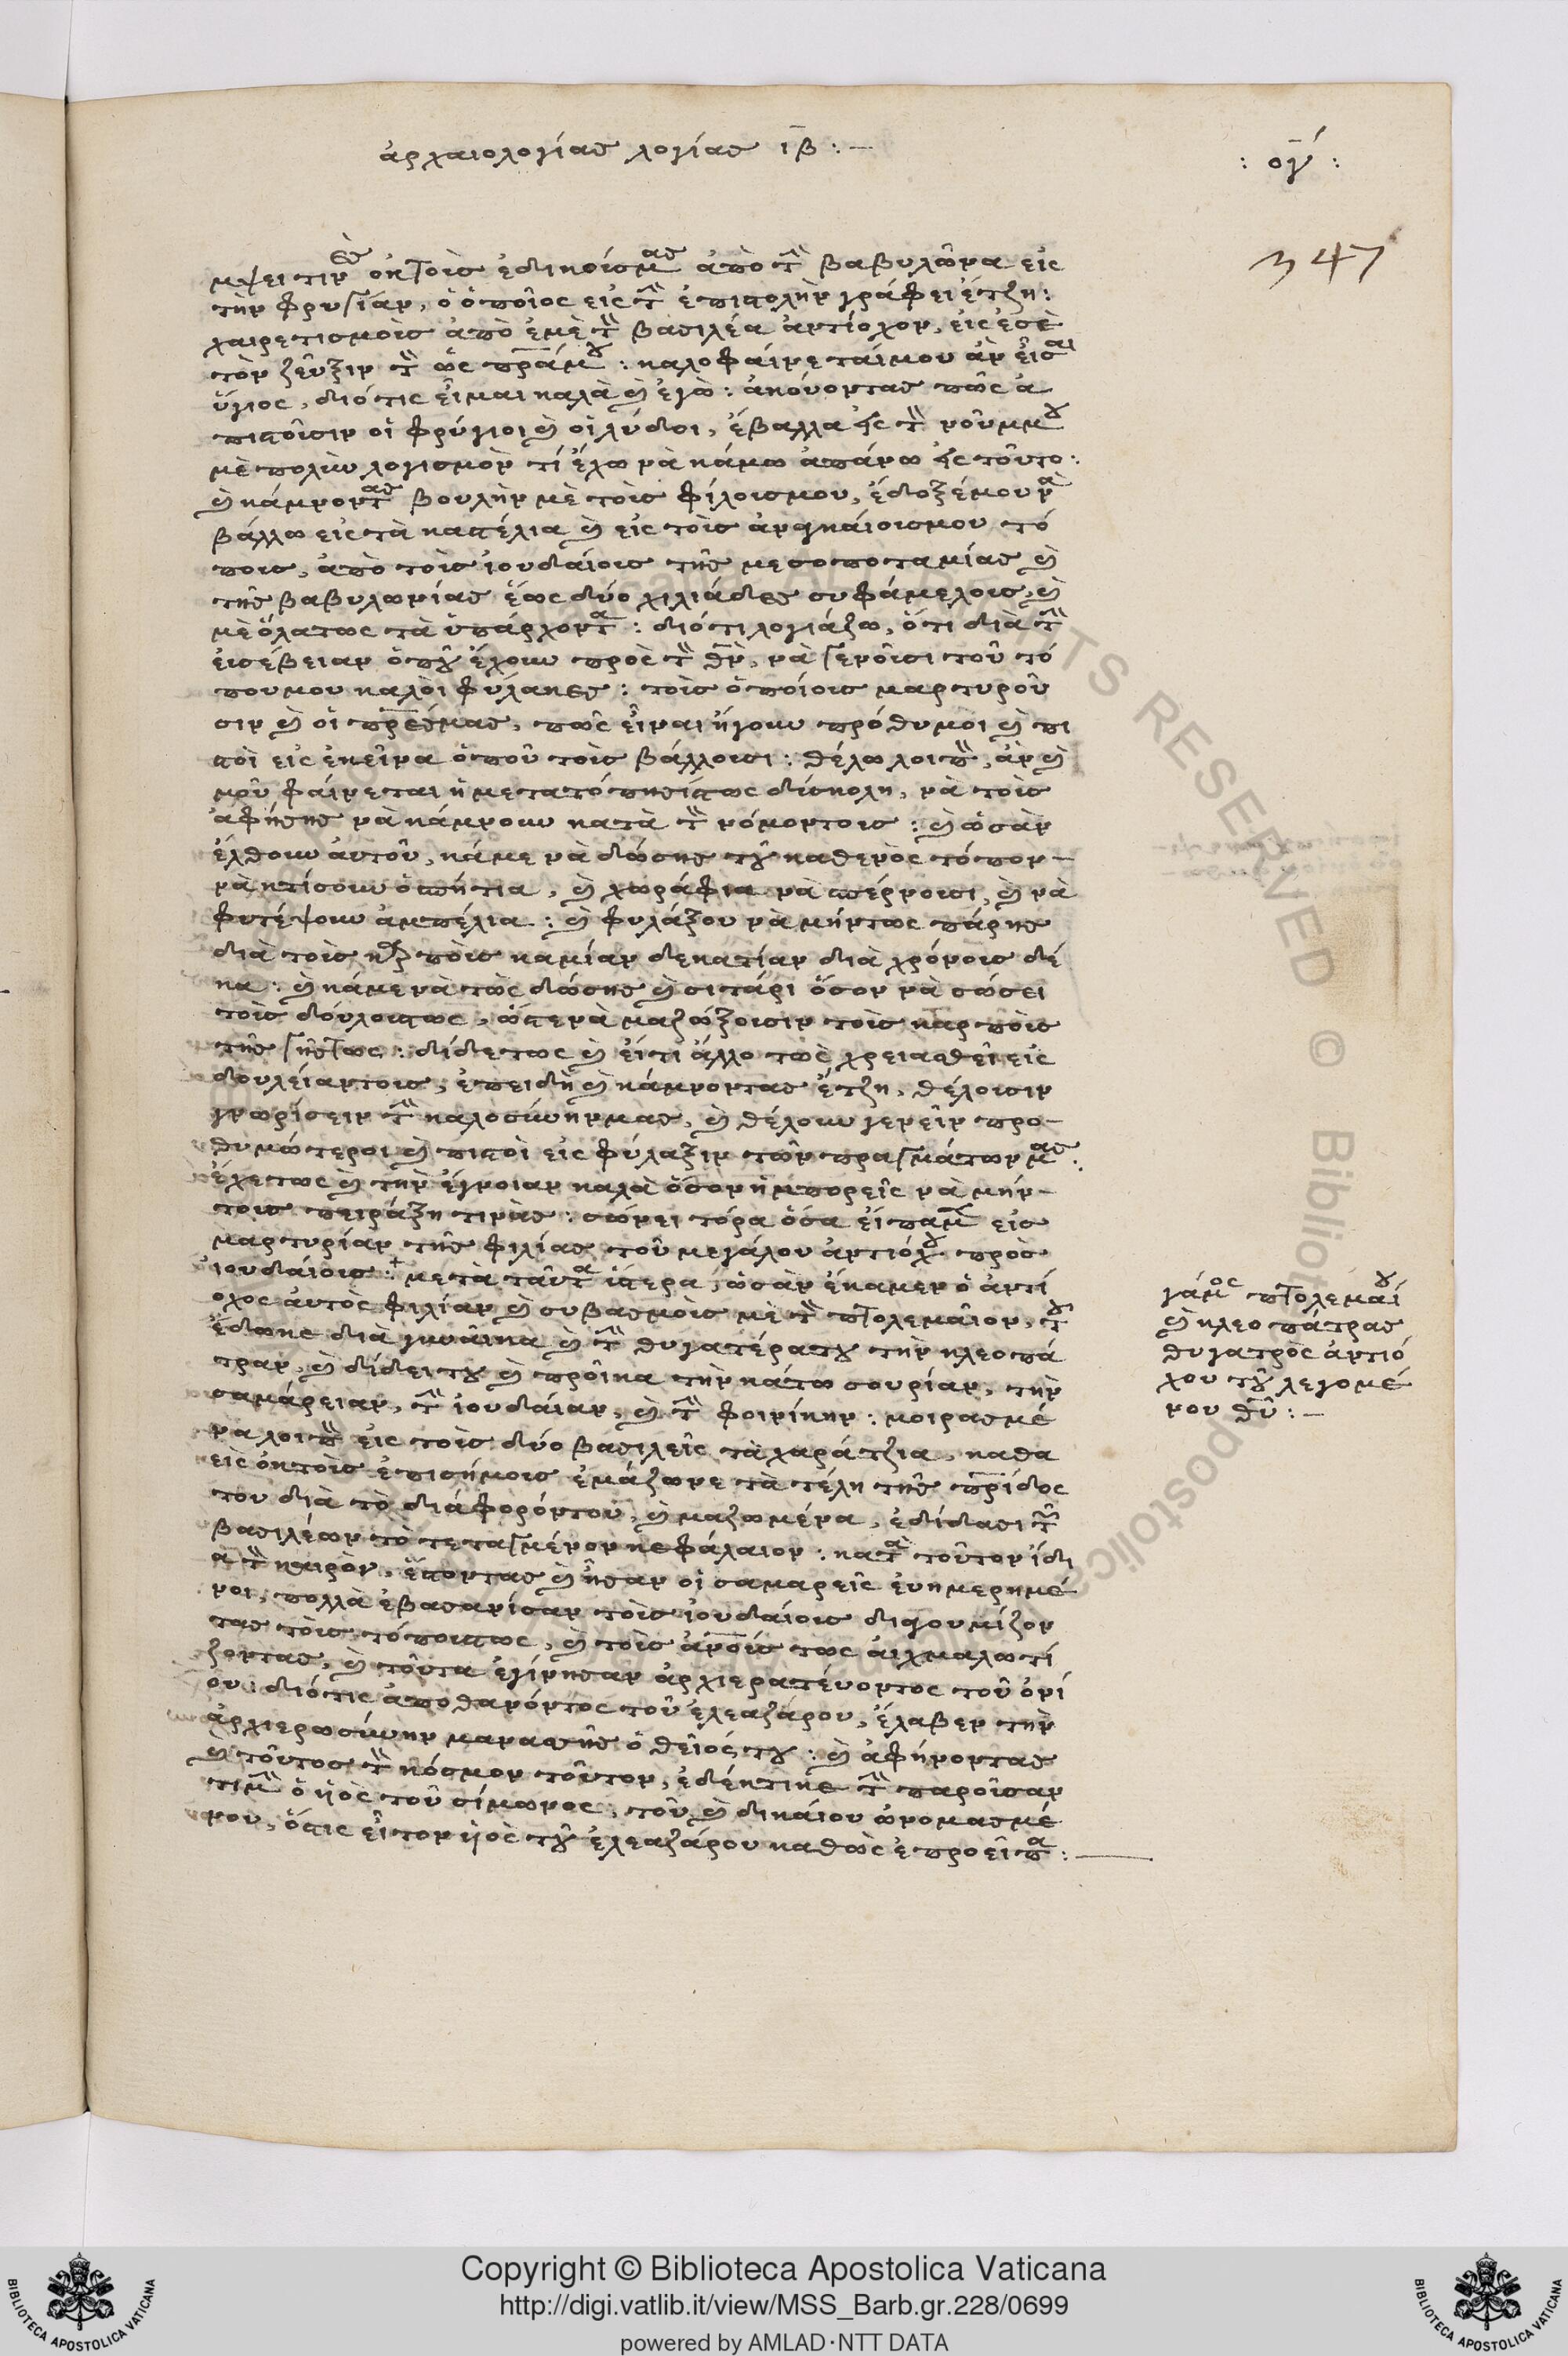 ἀρχαιολογίας λογίας ιβ : —
: ογ :
347
μψει τινὲς ἐκ τοὺς ἐδικούσμας ἀπὸ τὴν βαβυλῶνα εἰς
τὴν φρυγίαν, ὁ ὁποῖος εἰς τὴν ἐπιστολὴν γράφει ἔτζη :
χαιρετισμοὺς ἀπὸ ἐμὲ τὸν βασιλέα ἀντίοχον, εἰς ἐσὲ
τὸν ζεῦξιν τὸν ὡς πράμου : καλοφαίνεταίμου ἂν εἶσαι
ὕγιος, διότις εἶμαι καλὰ καὶ ἐγὼ : ἀκούοντας πῶς ἀ
πιστοῦσιν οἱ φρύγιοι καὶ οἱ λύδοι, ἔβαλλα εἰς τὸν νοῦμμου
μὲ πολὺν λογισμὸν τί ἔχω νὰ κάμω ἀπάνω εἰς τοῦτο :
καὶ κάμνοντας βουλὴν μὲ τοὺς φίλουσμου, ἔδοξέμου νὰ
βάλλω εἰς τὰ καστέλια καὶ εἰς τοὺς ἀναγκαίουσμου τό
πους, ἀπὸ τοὺς ἰουδαίους τῆς μεσοποταμίας καὶ
τῆς βαβυλωνίας ἕως δύο χιλιάδες συφάμελους, καὶ
μὲ ὅλατως τὰ ὑπάρχοντα : διότι λογιάζω, ὅτι διὰ τὴν
εὐσέβειαν ὁποῦ ἔχουν πρὸς τὸν θν, νὰ γενοῦσι τοῦ τό
πουμου καλοὶ φύλακες : τοὺς ὁποίους μαρτυροῦ
σιν καὶ οἱ πρεςμας, πῶς εἶναι ἤγουν πρόθυμοι καὶ πι
στοὶ εἰς ἐκεῖνα ὁποῦ τοὺς βάλλουσι : θέλω λοιπὸν, ἂν καὶ
μοῦ φαίνεται ἡ μετατόπησίςτως δύσκολη, νὰ τοὺς
ἀφήσης νὰ κάμνουν κατὰ τὸν νόμοντους : καὶ ὡσὰν
ἔλθουν αὐτοῦ, κάμε νὰ δώσης τοῦ καθενὸς τόπον —
νὰ κτίσουν ὁσπήτια, καὶ χωράφια νὰ σπέρνουσι, καὶ νὰ
φυτέψουν ἀμπέλια : καὶ φυλάξου νὰ μήντως πάρης
διὰ τοὺς καρποὺς καμίαν δεκατίαν διὰ χρόνους δέ
κα : καὶ κάμε νὰ τὼς δώσης καὶ σιτάρι ὅσον νὰ σώσει
τοὺς δούλουςτως, ὥστε νὰ μαζώξουσιν τοὺς καρποὺς
τῆς γῆςτως : δίδετως καὶ εἴτι ἄλλο τὼς χρειασθεῖ εἰς
δουλείαντους, ἐπειδὴ καὶ κάμνοντας ἔτζη, θέλουσιν
γνωρίσειν τὴν καλοσύνηνμας, καὶ θέλουν γενεῖν προ-
θυμώτεροι καὶ πιστοὶ εἰς φύλαξιν τῶν πραγμάτωνμας :
ἔχετως καὶ τὴν ἔγνοιαν καλὰ ὅσον ἠμπορεῖς νὰ μήν —
τους πειράξη τινὰς : σώνει τόρα ὅσα εἴπαμεν εἰς
μαρτυρίαν τῆς φιλίας τοῦ μεγάλου ἀντιόχου πρὸς
ἰουδαίους :+ μετὰ ταῦτα ὕστερα, ὡσὰν ἔκαμεν ὁ ἀντί
οχος αὐτὸς φιλίαν καὶ συβασμοὺς μὲ τὸν πτολεμαῖον, τοῦ
ἔδωκε διὰ γυναῖκα καὶ τὴν θυγατέρατου τὴν κλεοπά
τραν, καὶ δίδει του καὶ προῖκα τὴν κάτω συρίαν, τὴν
σαμάρειαν, τὴν ἰουδαίαν, καὶ τὴν φοινίκην : μοιρασμέ
να λοιπὸν εἰς τοὺς δύο βασιλεῖς τὰ χαράτζια, καθα
εἷς ἐκ τοὺς ἐπισήμους ἐμάζωνε τὰ τέλη τῆς πρίδος
του διὰ τὸ διάφορόντου, καὶ μαζωμένα, ἐδίδασι τῶν
βασιλέων τὸ τεταγμένον κεφάλαιον : κατὰ τοῦτον ἴδι
ο τὸν καιρὸν, ἔστοντας καὶ ἦσαν οἱ σαμαρεῖς εὐημερημέ
νοι, πολλὰ ἐβασανίσαν τοὺς ἰουδαίους διαγουμίζον
τας τοὺς τόπουςτως, καὶ τοὺς ἀνους τως αἰχμαλωτί
ζοντας, καὶ τοῦτα ἐγίνησαν ἀρχιερατεύοντος τοῦ ὀνί
ου : διότις ἀποθανόντος τοῦ ἐλεαζάρου, ἔλαβεν τὴν
ἀρχιερωσύνην μανασῆς ὁ θεῖός του : καὶ ἀφήνοντας
καὶ τοῦτος τὸν κόσμον τοῦτον, ἐδέκτηκε τὴν παροῦσαν
τιμὴν ὁ υἱὸς τοῦ σίμωνος, τοῦ καὶ δικαίου ὠνομασμέ
νου, ὅστις εἶτον υἱὸς τοῦ ἐλεαζάρου καθὼς ἐπροεῖπα : —
γάμος πτολεμαίου
καὶ κλεοπάτρας
θυγατρὸς ἀντιό
χου τοῦ λεγομέ
νου θῦ : —
Copyright © Biblioteca Apostolica Vaticana
http://digi.vatlib.it/view/MSS_Barb.gr.228/0699
powered by AMLAD·NTT DATA